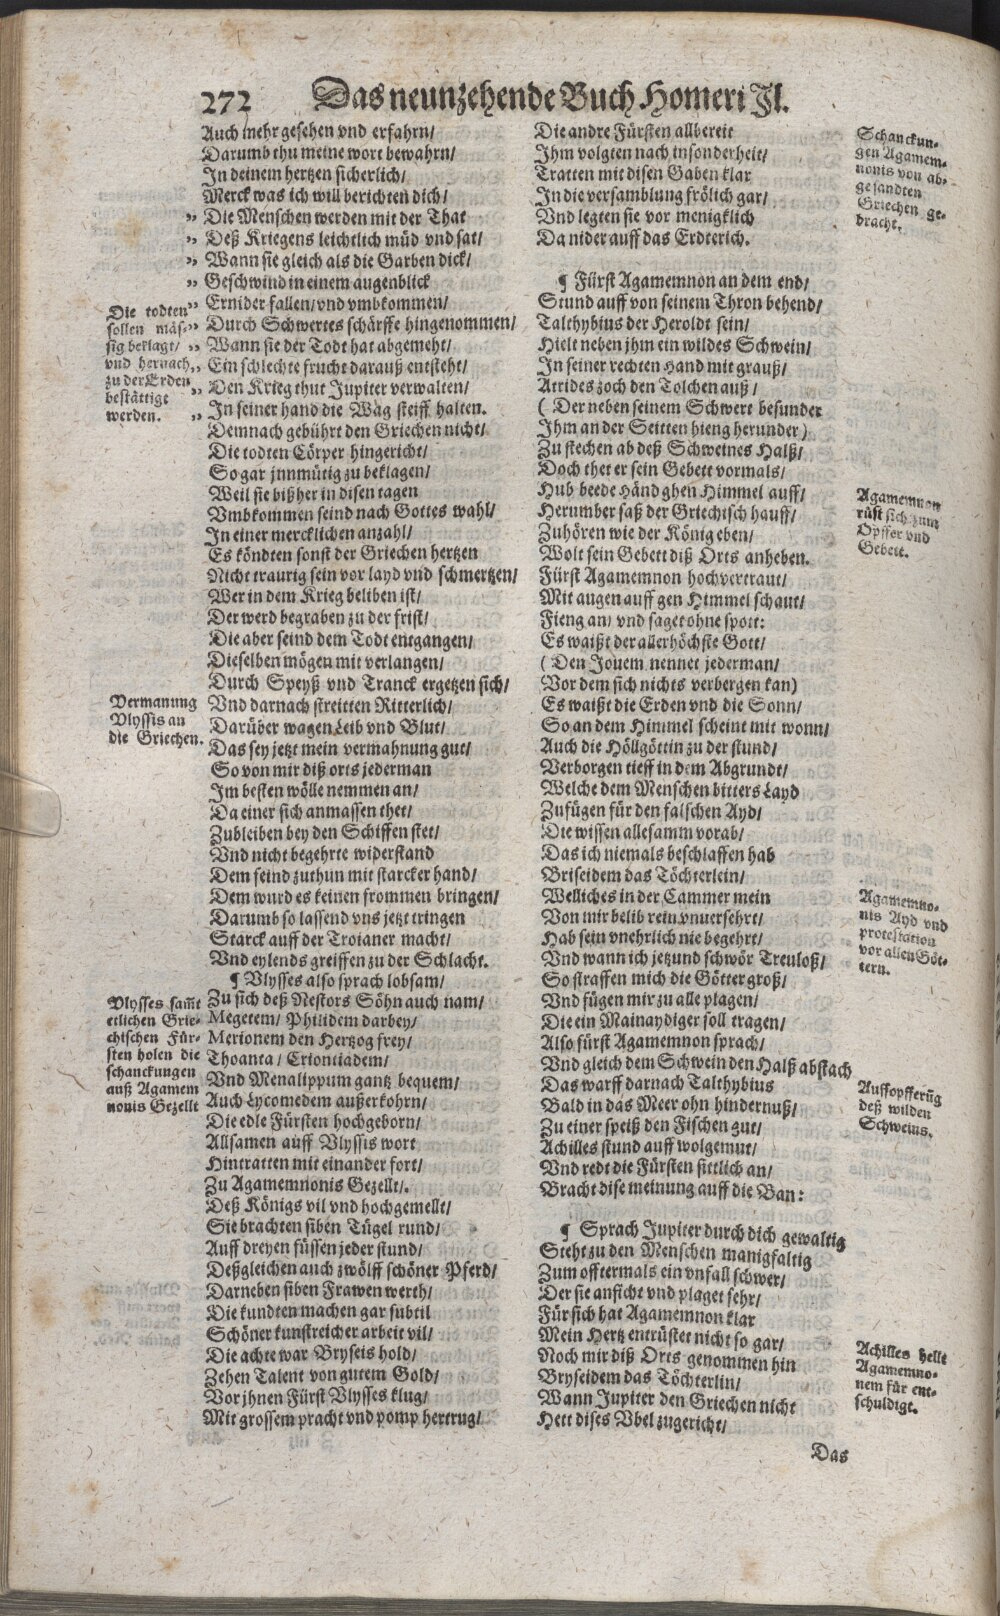 272 Das neunzehende Buch Homeri Jl.
Auch mehr gesehen vnd erfahrn/
Darumb thu meine wort bewahrn/
In deinem hertzen sicherlich/
Merck was ich will berichten dich/
„ Die Menschen werden mit der That
„ Deß Kriegens leichtlich müd vnd sat/
„ Wann sie gleich als die Garben dick/
„ Geschwind in einem augenblick
„ Ernider fallen/ vnd vmbkommen/
„ Durch Schwertes schärffe hingenommen/
„ Wann sie der Todt hat abgemeht/
„ Ein schlechte frucht darauß entsteht/
„ Den Krieg thut Jupiter verwalten/
„ In seiner hand die Wäg steiff halten.
Die todten
sollen mäs-
sig beklagt/
vnd hernach
zu der Erden
bestättigt
werden.
Demnach gebührt den Griechen nicht/
Die todten Cörper hingericht/
So gar jnnmütig zu beklagen/
Weil sie bißher in disen tagen
Vmbkommen seind nach Gottes wahl/
In einer mercklichen anzahl/
Es köndten sonst der Griechen hertzen
Nicht traurig sein vor layd vnd schmertzen/
Wer in dem Krieg beliben ist/
Der werd begraben zu der frist/
Die aber seind dem Todt entgangen/
Dieselben mögen mit verlangen/
Durch Speyß vnd Tranck ergetzen sich/
Vnd darnach streitten Ritterlich/
Darüber wagen Leib vnd Blut/
Das sey jetzt mein vermahnung gut/
Vermanung
Vlyssis an
die Griechen.
So von mir diß orts jederman
Im besten wölle nemmen an/
Da einer sich anmassen thet/
Zubleiben bey den Schiffen stet/
Vnd nicht begehrte widerstand
Dem feind zuthun mit starcker hand/
Dem wurd es keinen frommen bringen/
Darumb so lassend vns jetzt tringen
Starck auff der Troianer macht/
Vnd eylends greiffen zu der Schlacht.
¶ Vlysses also sprach lobsam/
Zu sich deß Nestors Söhn auch nam/
Megetem/ Philidem darbey/
Merionem den Hertzog frey/
Thoanta/ Crioniiadem/
Vnd Menalippum gantz bequem/
Auch Lycomedem außerkohrn/
Vlysses samt
etlichen Grie-
chischen Für-
sten holen die
schanckungen
auß Agamem
nonis Gezellt
Die edle Fürsten hochgeborn/
Allsamen auff Vlyssis wort
Hintratten mit einander fort/
Zu Agamemnonis Gezellt/.
Deß Königs vil vnd hochgemellt/
Sie brachten siben Tügel rund/
Auff dreyen füssen jeder stund/
Deßgleichen auch zwölff schöner Pferd/
Darneben siben Frawen werth/
Die kundten machen gar subtil
Schöner kunstreicher arbeit vil/
Die achte war Bryseis hold/
Zehen Talent von gutem Gold/
Vor jhnen Fürst Vlysses klug/
Mit grossem pracht vnd pomp hertrug/
Die andre Fürsten allbereit
Ihm volgten nach insonderheit/
Tratten mit disen Gaben klar
In die versamblung frölich gar/
Vnd legten sie vor menigklich
Da nider auff das Erdterich.
Schanckun-
gen Agamem-
nonis von ab-
gesandten
Griechen ge-
bracht.
¶ Fürst Agamemnon an dem end/
Stund auff von seinem Thron behend/
Talthybius der Heroldt sein/
Hielt neben jhm ein wildes Schwein/
In seiner rechten Hand mit grauß/
Atrides zoch den Tolchen auß/
( Der neben seinem Schwert besunder
Ihm an der Seitten hieng herunder)
Zu stechen ab deß Schweines Halß/
Doch thet er sein Gebett vormals/
Hub beede Händ ghen Himmel auff/
Herumber saß der Griechisch hauff/
Zuhören wie der König eben/
Wolt sein Gebett diß Orts anheben.
Agamemnon
rüst sich zum
Opffer vnd
Gebett.
Fürst Agamemnon hochvertraut/
Mit augen auff gen Himmel schaut/
Fieng an/ vnd saget ohne spott:
Es waißt der allerhöchste Gott/
( Den Jouem nennet jederman/
Vor dem sich nichts verbergen kan)
Es waißt die Erden vnd die Sonn/
So an dem Himmel scheint mit wonn/
Auch die Höllgöttin zu der stund/
Verborgen tieff in dem Abgrundt/
Welche dem Menschen bitters Layd
Zufügen für den falschen Ayd/
Die wissen allesamm vorab/
Das ich niemals beschlaffen hab
Briseidem das Töchterlein/
Welliches in der Cammer mein
Von mir belib rein vnuersehrt/
Hab sein vnehrlich nie begehrt/
Vnd wann ich jetzund schwör Treuloß/
So straffen mich die Götter groß/
Agamemno-
nis Ayd vnd
protestation
vor allen Göt-
tern.
Vnd fügen mir zu alle plagen/
Die ein Mainaydiger soll tragen/
Also fürst Agamemnon sprach/
Vnd gleich dem Schwein den Halß abstach
Das warff darnach Talthybius
Bald in das Meer ohn hindernuß/
Zu einer speiß den Fischen gut/
Achilles stund auff wolgemut/
Vnd redt die Fürsten sittlich an/
Bracht dise meinung auff die Ban:
Auffopfferung
deß wilden
Schweins.
¶ Sprach Jupiter durch dich gewaltig
Steht zu den Menschen manigfaltig
Zum offtermals ein vnfall schwer/
Der sie anficht vnd plaget sehr/
Für sich hat Agamemnon klar
Mein Hertz entrüstet nicht so gar/
Noch mir diß Orts genommen hin
Bryseidem das Töchterlin/
Wann Jupiter den Griechen nicht
Hett dises Vbel zugericht/
Achilles hellt
Agamemno-
nem für ent-
schuldigt.
Das